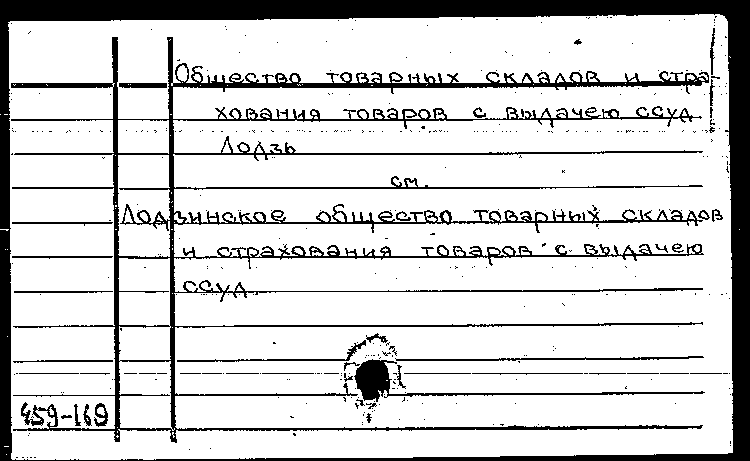 Общество товарных складов и стра-
хования товаров с выдачею ссуд
Лодзь
см.
Лодзинское общество товарных складов
и страхования товаров с выдачею
ссуд.
459-169